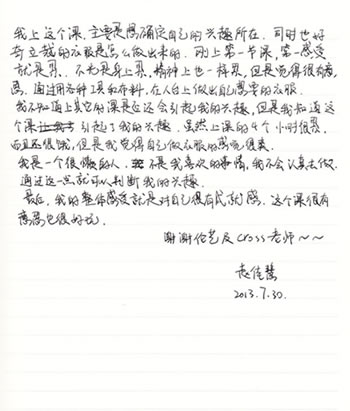 我上这个课,主要是想确定自己的兴趣所在。同时也好
奇立裁的衣服是怎么做出来的。刚上第一节课,第一感受
就是累。不光是身上累,精神上也一样累,但是觉得很有意
思。通过用各种工具和布料,在人台上做出自己需要的衣服。
我不知道上其它的课是否还会引起我的兴趣,但是我知道这
个课引起了我的兴趣。虽然上课的4个小时很累,
而且还很饿,但是我觉得自己做衣服的感觉很爽
我是一个很懒的人,不是我喜欢的事情,我不会认真去做。
通过这一点就可以判断我的兴趣。
最后,我的整体感受就是对自己很有成就感。这个课很有
意思也很好玩。
谢谢伦艺及cross老师~~
赵佳慧
2013.7.30.